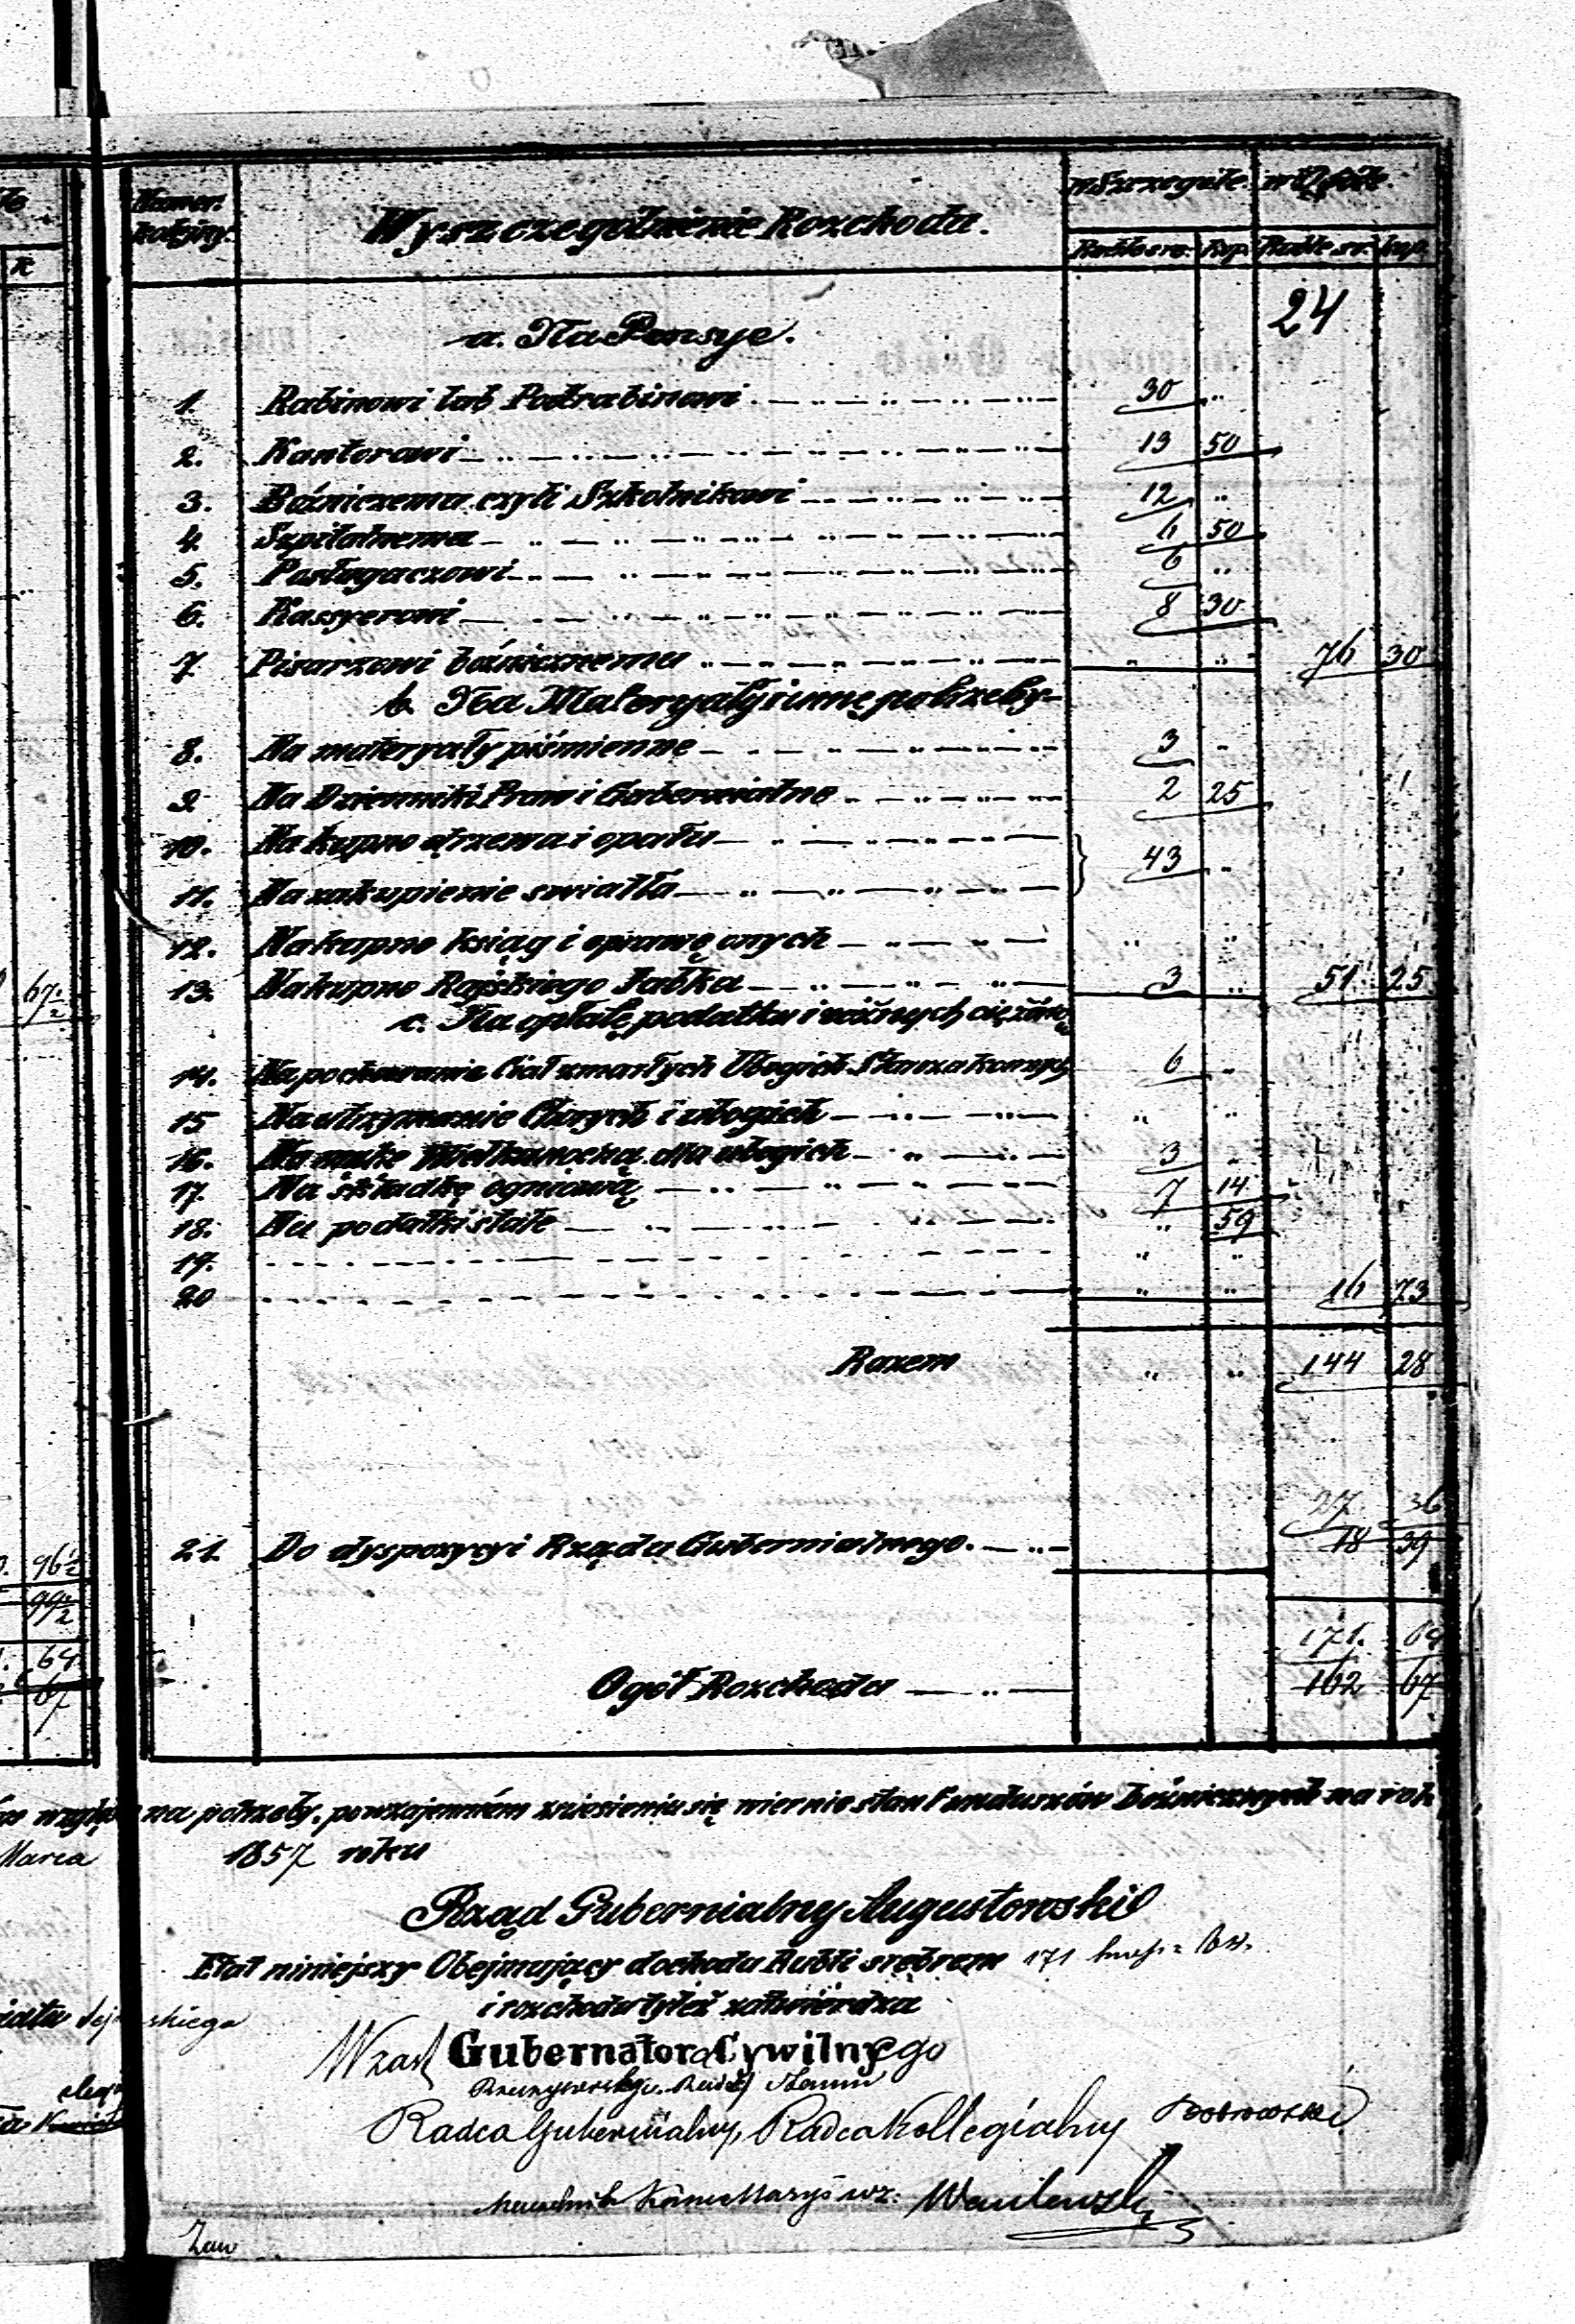 Numer kolejny.
Wyszczególnienie Rozchodu.
w Szczególe. w Ogóle.
Ruble sre. Kop. Ruble sr. kop.
24
a. Na Pensye.
1. Rabinowi lub Podrabinowi 30 "
2. Kantorowi 13 50
3. Bóżniczemu czyli Szkolnikowi 12 "
4. Szpitalnemu 6 50
5. Posługaczowi 6 "
6. Kassyerowi 8 30
7. Pisarzowi bóżnicznemu " " 76 30
b. Na Materyały i inne potrzeby
8. Na materyały piśmienne 3 "
9. Na Dzienniki Praw i Gubernialne 2 25
10. Na kupno drzewa i opału } 43 "
11. Na zakupienie swiatła
12. Na kupno ksiąg i oprawę onych " "
13. Na kupno Rajskiego Jabłka 3 " 51 25
c. Na opłatę podatku i różnych ciężarów
14. Na pochowanie Ciał zmarłych Ubogich Starozakonnych 6 "
15 Na utrzymanie Chorych i ubogich " "
16. Na mąkę Wielkanocną dla ubogich 3 "
17. Na składkę ogniową 7 14
18. Na podatki stałe " 59
19. " "
20 " " 16 73
Razem " " 144 28
27 36
21. Do dyspozycyi Rządu Gubernialnego. 18 39
171. 64
Ogół Rozchodu 162 67
67 1/2
96 1/2
99 1/2
64
67
wzglę na potrzeby, powzajemném zniesieniu się wiernie stan Funduszów bóżnicznych na rok
Marca 1857 roku
Rząd Gubernialny Augustowski
Etat niniejszy Obejmujący dochodu Rubli srebrem 171 kop. 64.
i rozchodu tyleż zatwierdza
W zast Gubernatora Cywilnego
Rzeczywisty Radca Stanu
Radca Gubernialny, Radca Kollegialny
Naczelnik Kancellaryi wz: